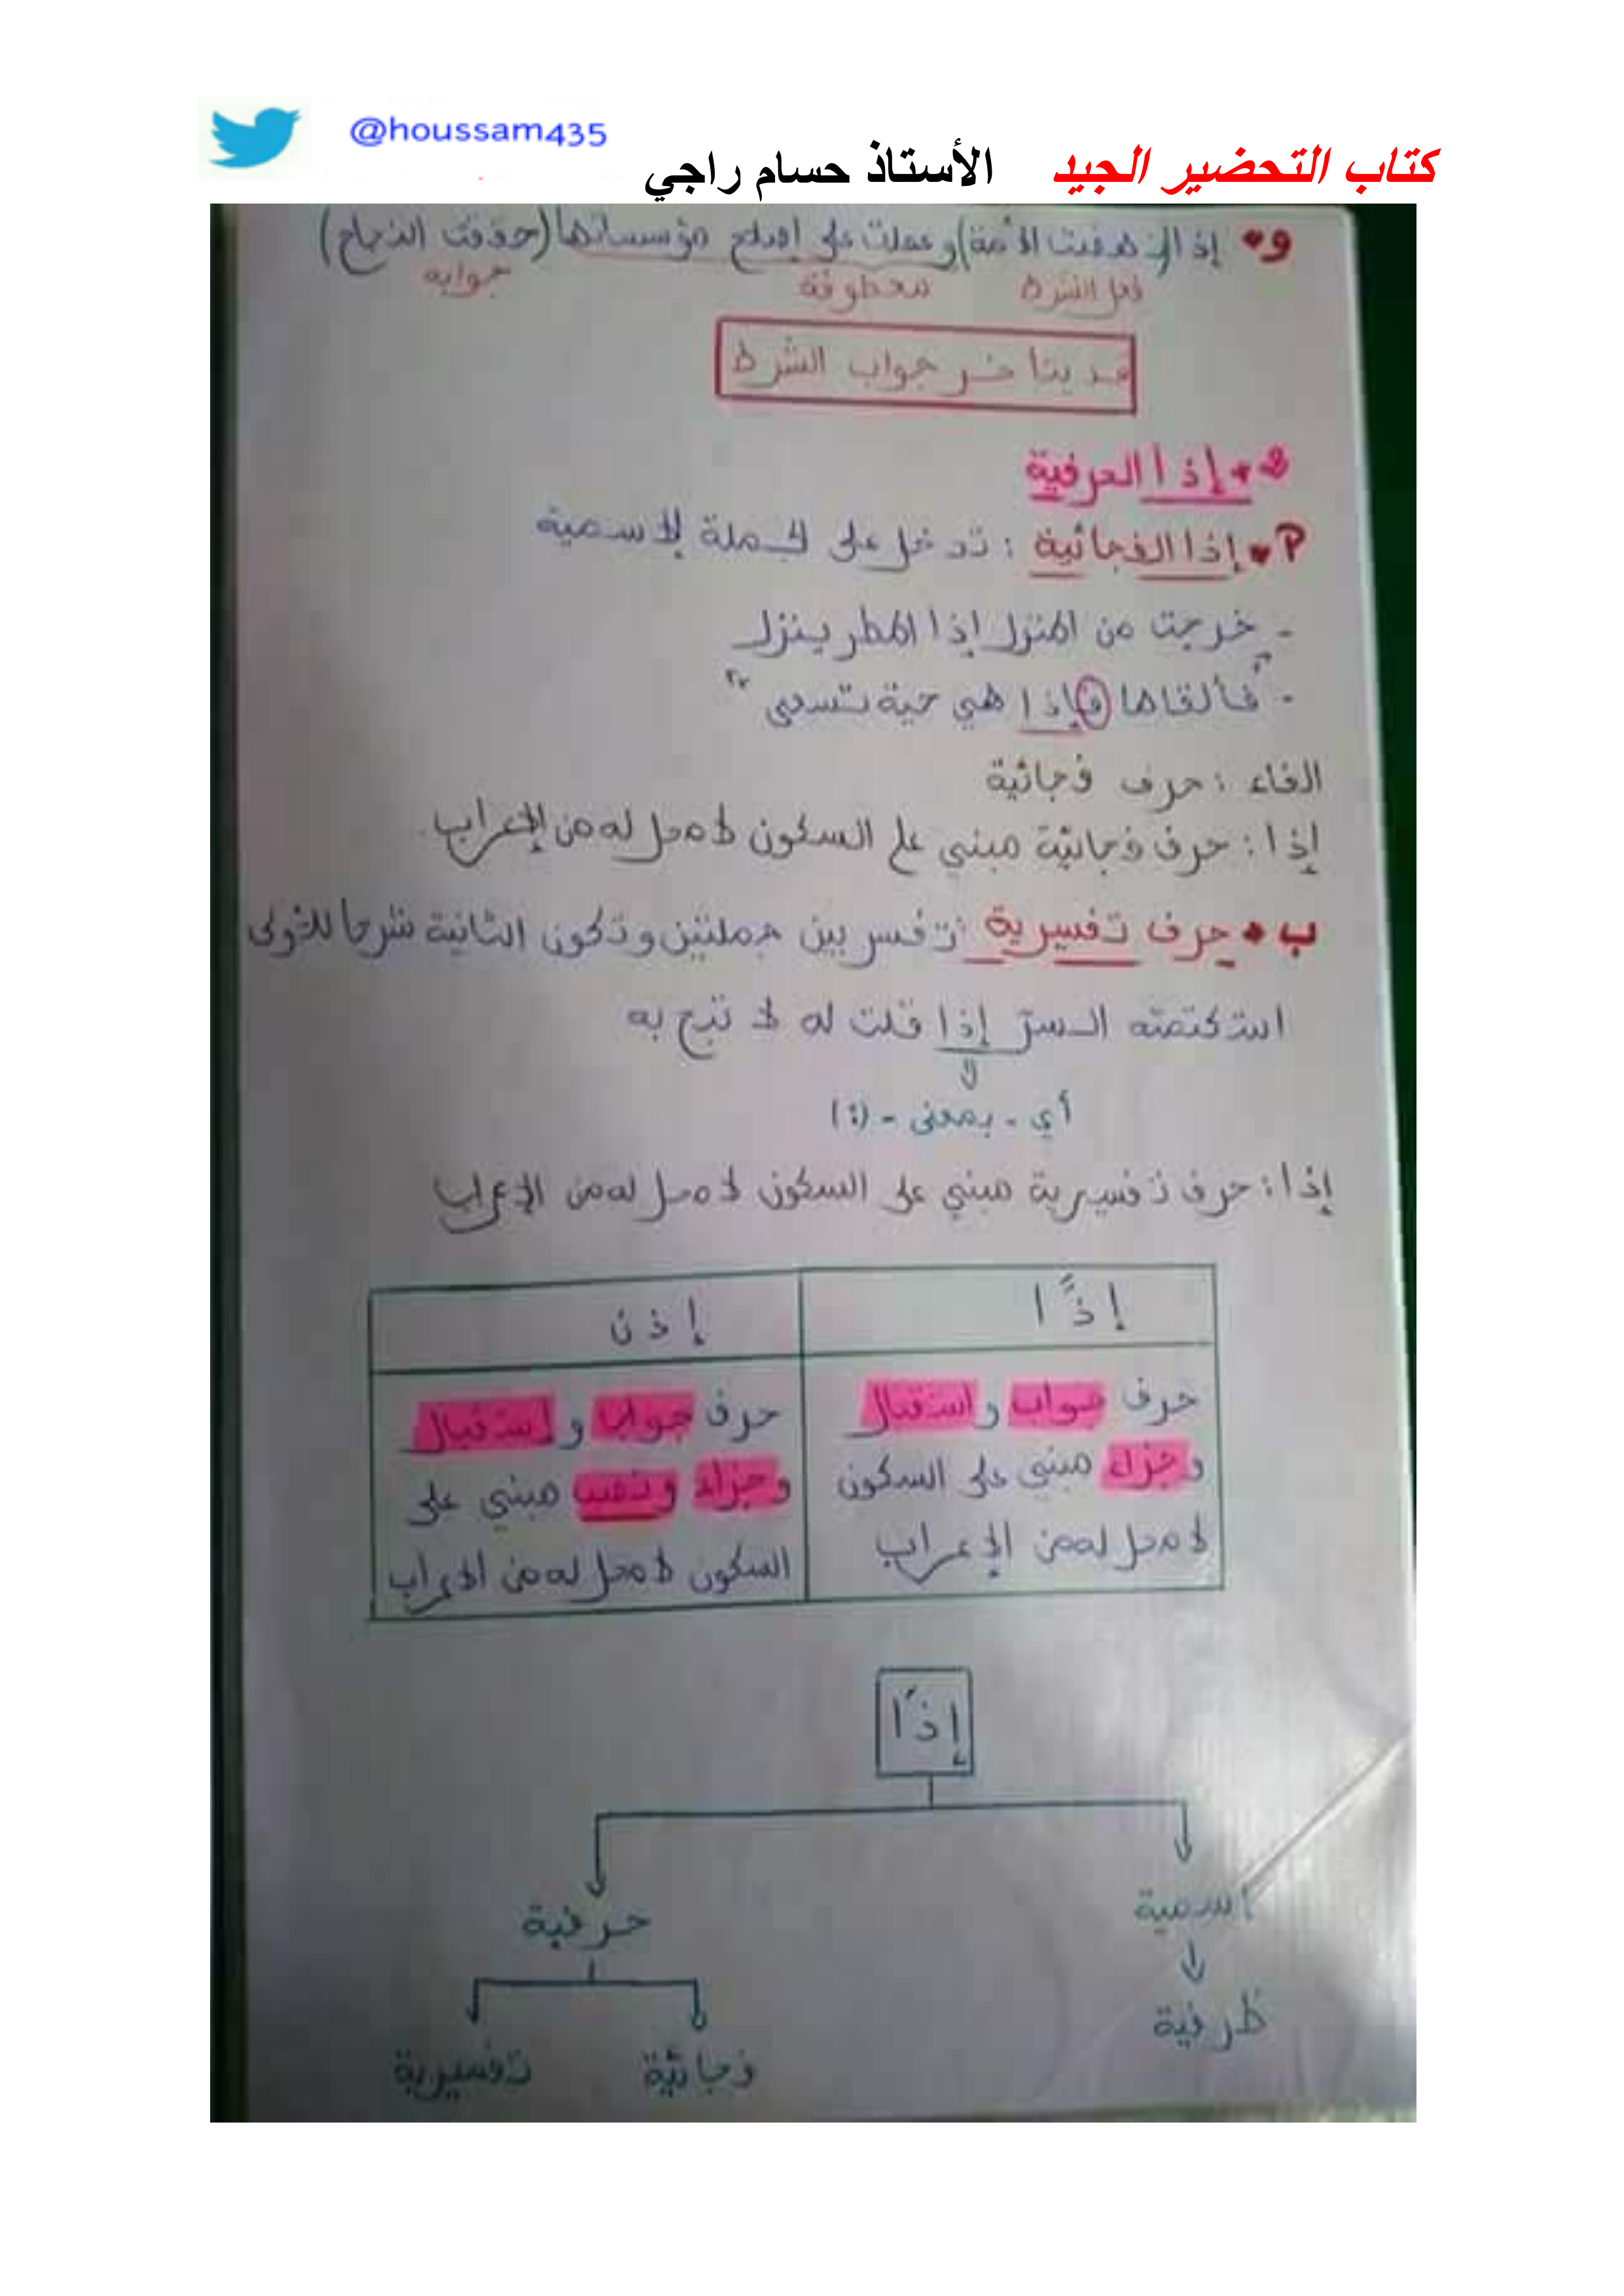 @houssam435
كتاب التحضير الجيد الأستاذ حسام راجي
و• إذا الأمة) وعملت على إصلاح مؤسساتها (حققت النجاح)
فعل الشرط معطوفة جوابه
قد يتأخر جواب الشرط
إذا الحرفية
أ• إذا الفجائية : تدخل على الجملة الاسمية
- خرجت من المنزل إذا المطر ينزل
- "فألقاها فإذا هي حية تسعى"
الفاء : حرف فجائية
إذا : حرف فجائية مبني على السكون لا محل له من الإعراب.
ب• حرف تفسيرية : تفسر بين جملتين وتكون الثانية شرحا للأولى
استكتمته السرّ إذا قلت له لا تبح به
أي - بمعنى - (:)
إذا : حرف تفسيرية مبني على السكون لا محل له من الإعراب
إذًا
إذن
حرف جواب و استقبال
وجزاء مبني على السكون
لا محل له من الإعراب
حرف جواب و إستقبال
وجزاء ونصب مبني على
السكون لا محل له من الاعراب
إذًا
اسمية
حرفية
ظرفية
فجائية
تفسيرية